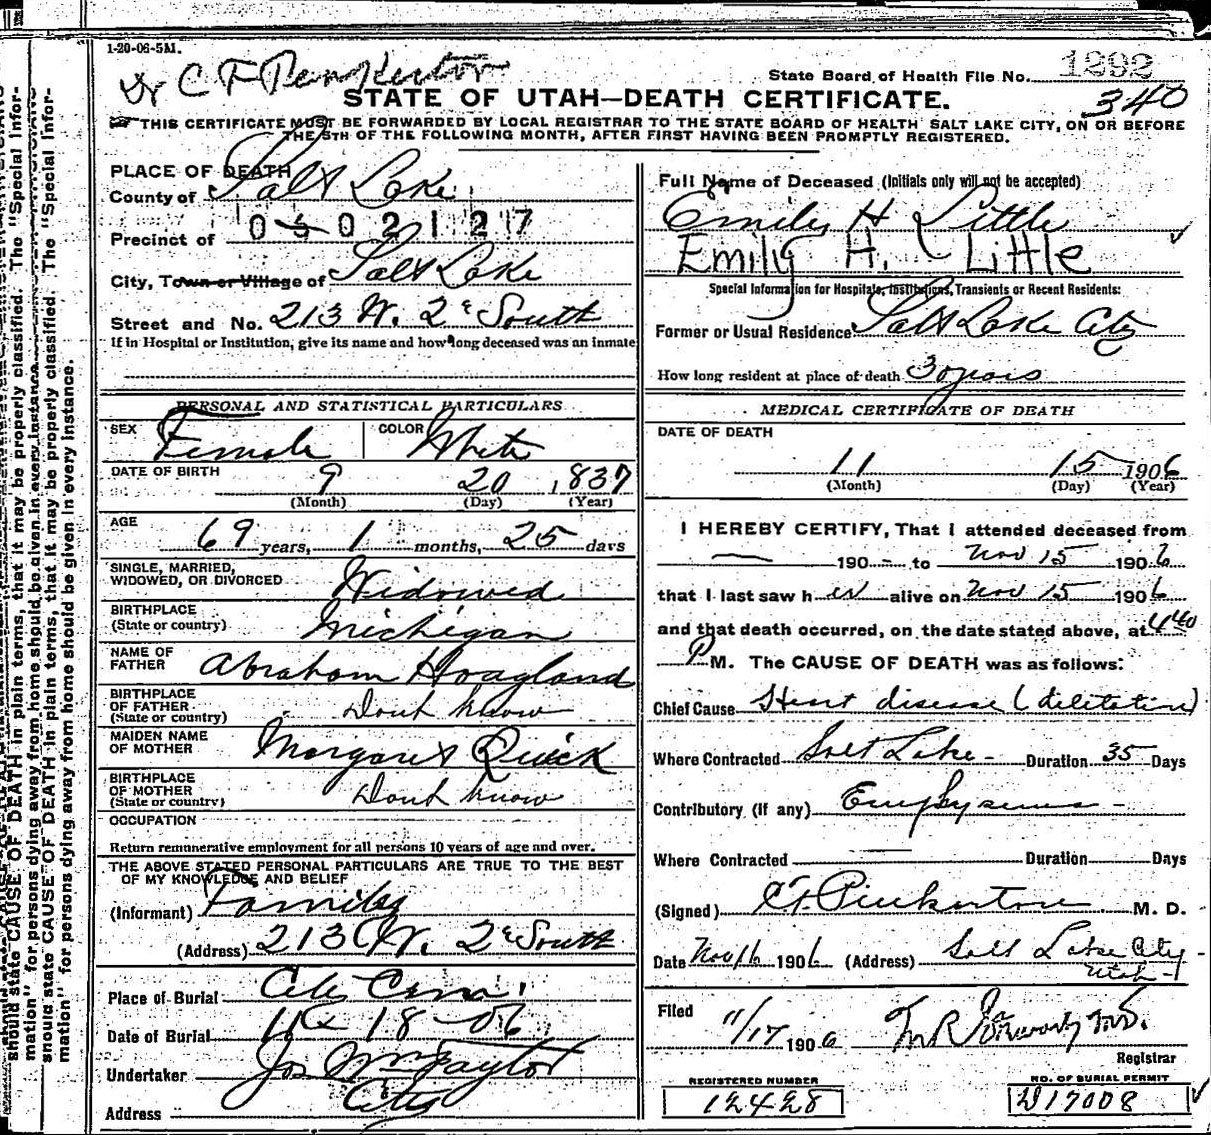 1-20-06-5M.
Dr C F Pinkerton
State Board of Health File No. 1292
340
STATE OF UTAH—DEATH CERTIFICATE.
THIS CERTIFICATE MUST BE FORWARDED BY LOCAL REGISTRAR TO THE STATE BOARD OF HEALTH SALT LAKE CITY, ON OR BEFORE
THE 5TH OF THE FOLLOWING MONTH, AFTER FIRST HAVING BEEN PROMPTLY REGISTERED.
PLACE OF DEATH
County of Salt Lake
Precinct of 0502127
City, Town or Village of Salt Lake
Street and No. 213 W. 2d South
If in Hospital or Institution, give its name and how long deceased was an inmate
PERSONAL AND STATISTICAL PARTICULARS
SEX Female COLOR White
DATE OF BIRTH 9 20 1837
(Month) (Day) (Year)
AGE 69 years, 1 months, 25 days
SINGLE, MARRIED,
WIDOWED, OR DIVORCED Widowed
BIRTHPLACE
(State or country) Michigan
NAME OF
FATHER Abraham Hoagland
BIRTHPLACE
OF FATHER
(State or country) Dont know
MAIDEN NAME
OF MOTHER Margaret Quick
BIRTHPLACE
OF MOTHER
(State or country) Dont know
OCCUPATION
Return remunerative employment for all persons 10 years of age and over.
THE ABOVE STATED PERSONAL PARTICULARS ARE TRUE TO THE BEST
OF MY KNOWLEDGE AND BELIEF
(Informant) Family
(Address) 213 W. 2d South
Place of Burial City Cem.
Date of Burial 11 18-06
Undertaker Jos Wm Taylor
Address City
Full Name of Deceased (Initials only will not be accepted)
Emily H Little
Emily H. Little
Special Information for Hospitals, Institutions, Transients or Recent Residents:
Former or Usual Residence Salt Lake City
How long resident at place of death 30 years
MEDICAL CERTIFICATE OF DEATH
DATE OF DEATH
11 15 1906
(Month) (Day) (Year)
I HEREBY CERTIFY, That I attended deceased from
— 190 - to Nov 15 1906
that I last saw her alive on Nov 15 1906
and that death occurred, on the date stated above, at 440
P M. The CAUSE OF DEATH was as follows:
Chief Cause Heart disease (dilitation)
Where Contracted Salt Lake - Duration 35 Days
Contributory (if any) Emphysema -
Where Contracted Duration Days
(Signed) C.F. Pinkerton M. D.
Date Nov 16 1906 (Address) Salt Lake City
Utah
Filed 11/17 1906 M.D.
Registrar
REGISTERED NUMBER
12428
NO. OF BURIAL PERMIT
D17008
should state CAUSE OF DEATH in plain terms, that it may be properly classified. The "Special Infor-
mation" for persons dying away from home should be given in every instance.
should state CAUSE OF DEATH in plain terms, that it may be properly classified. The "Special Infor-
mation" for persons dying away from home should be given in every instance.